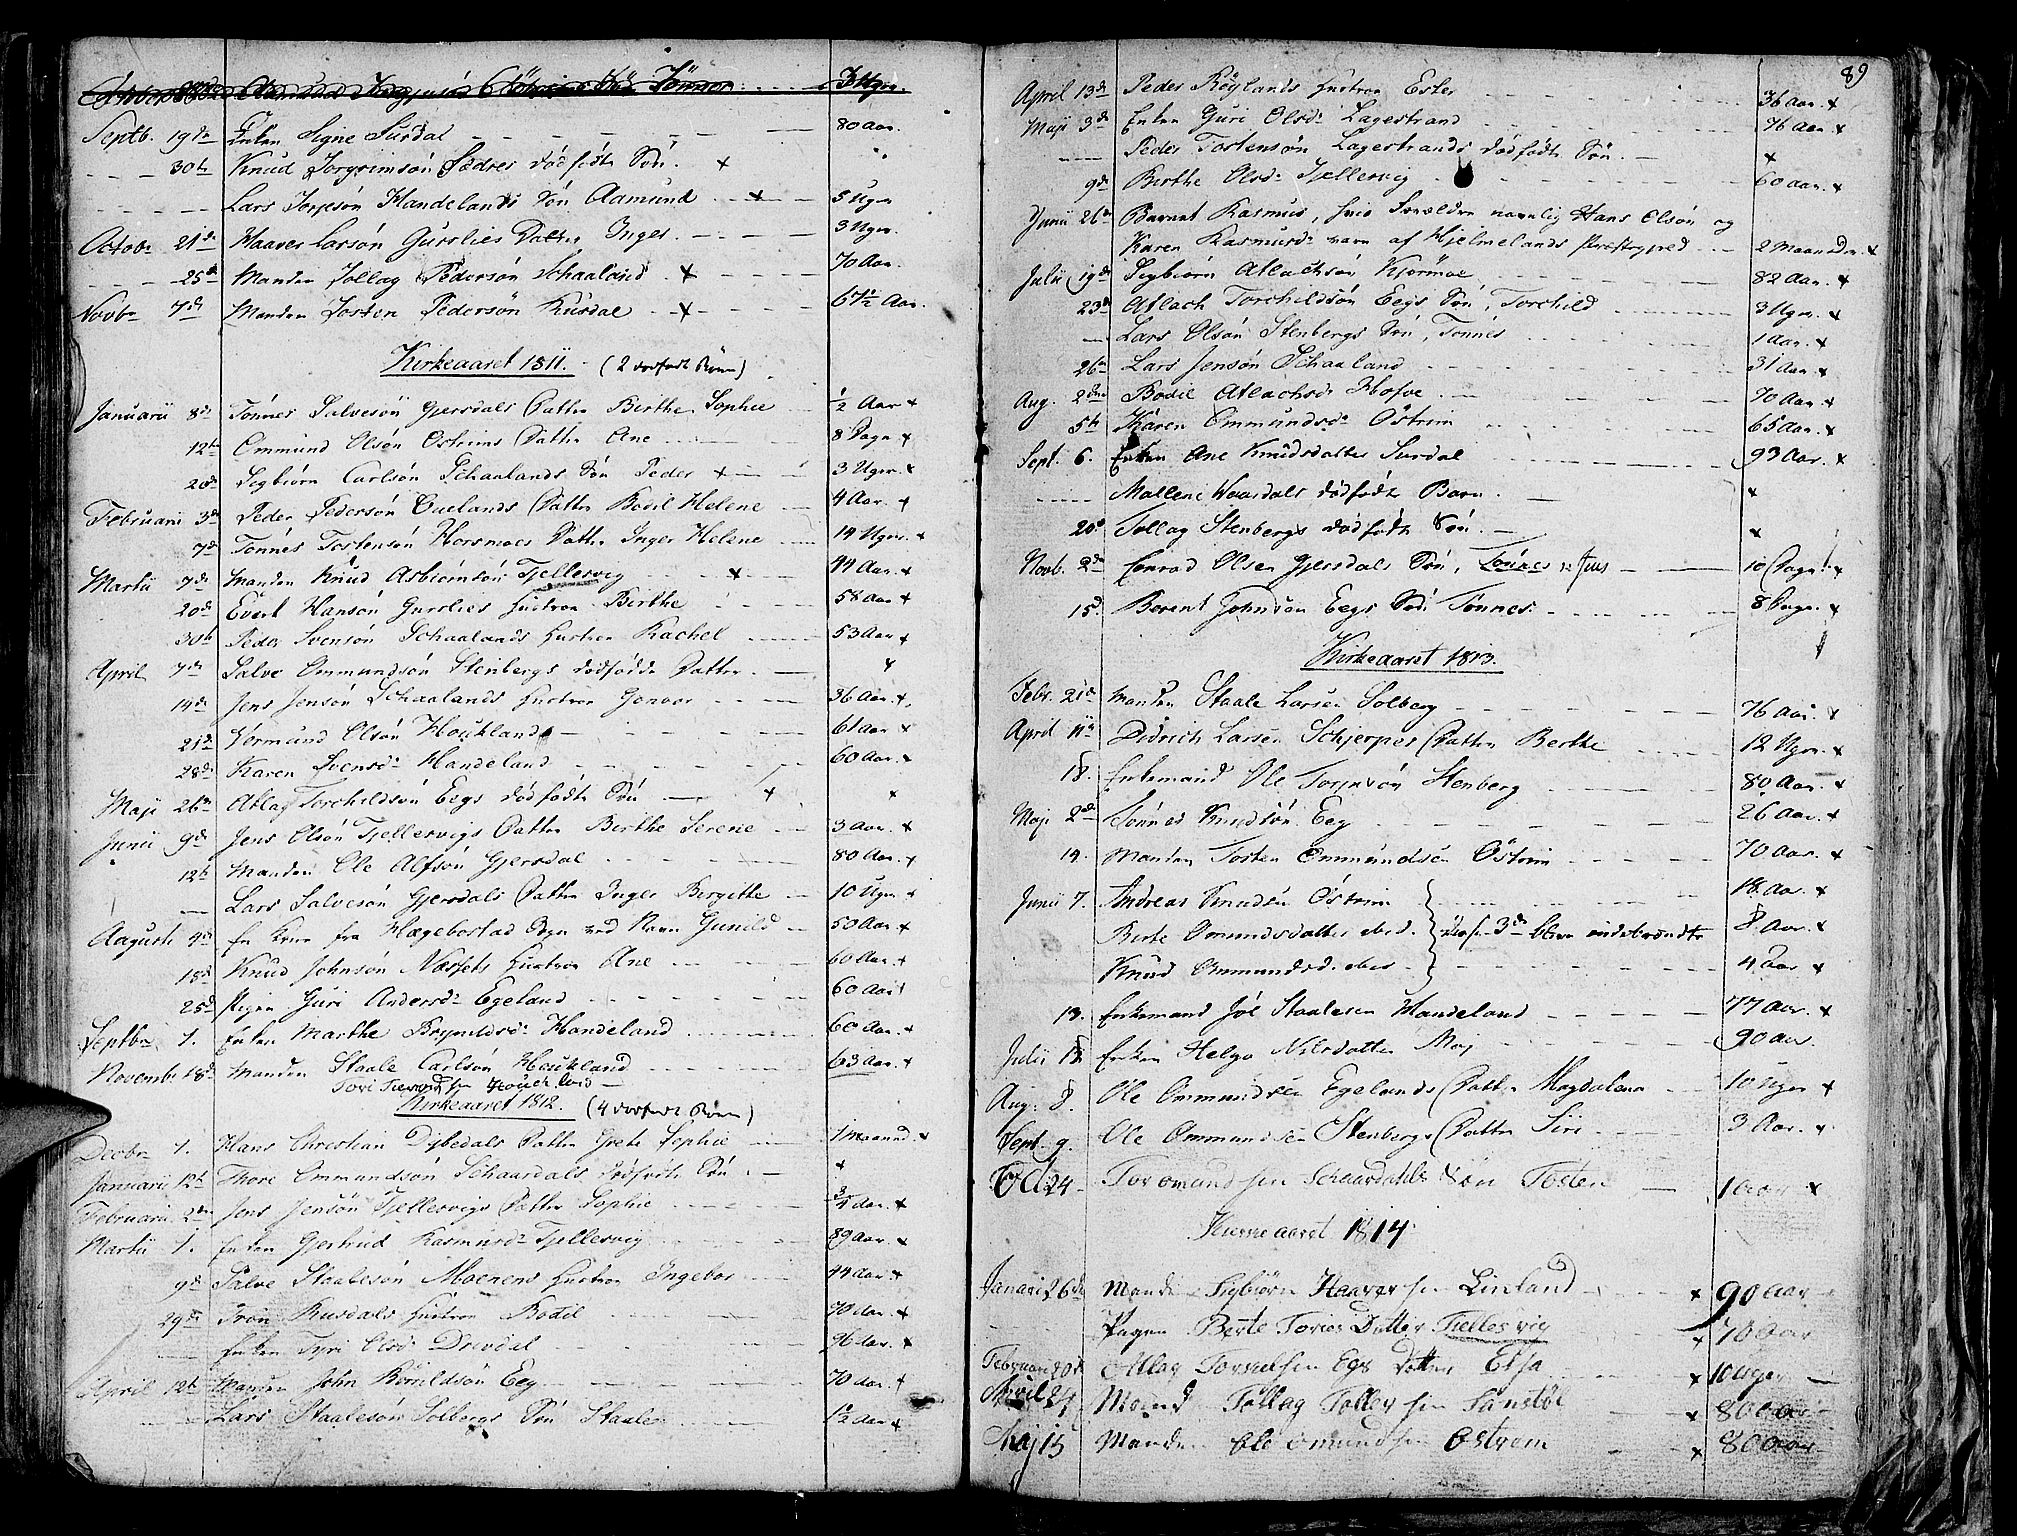 Septb. 19de Enken Signe Surdal 80 Aar.
30te Knud Jorgrimsön Fedres dödfödte Sön. x
Lars Torjesön Handelands Sön Aamund x 5 Uger
Octobr 21de Haaver Larsön Gursliés Datter Inger 3 Uger.
25de Manden Tollag Pedersön Schaaland x 70 Aar
Novbr 7de Manden Tosten Pedersön Rusdal x 67 1/2 Aar.
Kirkeaaret 1811. (2 dödfödte Börn)
Januarii 8de Tönnes Salvesön Gjersdals Datter Berthe Sophie 1/2 Aar x
12te Ommund Olsön Ostrims Datter Ane 8 Dage x
20de Sigbiörn Carlsön Schaalands Sön Peder x 3 Uger. x
Februarii 3de Peder Pedersön Euelands Datter Bodil Helene 4 Aar. x
7de Tönnes Tostensön Horsmoes Datter Inger Helene 14 Uger. x
Martii 7de Manden Knud Asbiörnsön Tjellesvig x 44 Aar. x
20de Evert Hansön Gurslies Hustroe Berthe 58 Aar x
30te Peder Svensön Schaalands Hustroe Rachel 53 Aar x
April 7de Salve Ommundsön Stenbergs dödfödde Datter. x
14de Jens Jensön Schaalands Hustroe Gunvor 36 Aar. x
21de Vermund Olsön Houkland 61 Aar x
28de Karen Svensdr Handeland 60 Aar. x
Maji 26de Atlag Torchildsön Eegs dödfödte Sön x x
Junii 9de Jens Olsön Tjellesvigs Datter Berthe Serene 3 Aar. x
12te Manden Ole Alfsön Gjersdal 80 Aar. x
Lars Salvesön Gjersdals Datter Inger Birgitte 10 Uger x
Augusti 4de En Kone fra Hægebostad Sogn ved Navn Gunild 50 Aar. x
18de Knud Johnsön Næssets Hustroe Ane 60 Aar. x
25de Pigen Guri Andersdr Egeland 60 Aar
Septbr 1. Enken Marthe Brynildsdr Handeland 60 Aar. x
Novembr 18de Manden Staale Carlsön Houkland 63 Aar. x
Kirkeaaret 1812. (4 dödfödte Börn)
Decbr 1. Hans Christian Dybedals Datter Grete Sophie 1 Maaned. x
Januarii 12te Thore Ommundsön Schaardals dödfödte Sön. x
Februarii 2den Jens Jensön Tjellesvigs Datter Sophie 3/4 Aar. x
Martii 1. Enken Gjertrud Rasmusdr Tjellesvig 89 Aar. x
9de Salve Staalesön Moenens Hustroe Ingebor 44 Aar x
29de Tron Rusdals Hustroe Bodil 70 Aar. x
Enken Tyri Olsdr Drivdal 96 Aar. x
April 12te Manden John Röinildsön Eeg 70 Aar. x
Lars Staalesön Solbergs Sön Staale 1 1/2 Aar x
89
April 13de Peder Röylands Hustroe Ester 36 Aar. x
Maji 3de Enken Guri Olsdr Lagestrand 76 Aar x
Peder Tostensön Lagestrands dödfödte Sön. x
9de Berthe Olsdr Tjellesvig 60 Aar. x
Junii 26de Barnet Rasmus, hvis Forældre navnlig Hans Olsön og
Karen Rasmusdr vare af Hjelmelands Præstegjeld 2 Maaneder x
Julii 19de Sigbiörn Atlachsön Kjörmoe 82 Aar. x
23de Atlach Torchildsön Eegs Sön, Torchild 3 Uger. x
Lars Olsön Stenbergs Sön, Tönnes 1 Aar. x
26te Lars Jensön Schaaland 31 Aar x
Aug. 2den Bodil Atlachsdr Hofve 70 Aar. x
5te Karen Ommundsdr Östrim 65 Aar. x
Sept. 6. Enken Ane Knudsdatter Surdal 93 Aar. x
Mallene Waardals dödfödte Barn. x
20de Tollag Stenbergs dödfödte Sön. x
Novb. 2den Conrad Olsen Gjersdals Sön, Tönnes 10 Dage. x
15de Berent Johnsön Eegs Sön Tönnes. 8 Dage. x
Kirkeaaret 1813.
Febr. 21de Manden Staale Larsen Solberg 76 Aar. x
April 11te Didrich Larsen Schjerpes Datter Berthe 12 Uger. x
18. Enkemand Ole Torjusön Stenberg 80 Aar. x
Maji 2den Tönnes Knudsön Eeg 26 Aar. x
14. Manden Tosten Ommundsen Östrim 70 Aar. x
Junii 7. Andreas Knudsen Östrim 18 Aar. x
Berte Omundsdatter ibid. disse 3de bleve indebrændte 8 Aar. x
Knud Ommundsd. ibid 4 Aar x
13. Enkemand Joe Staalesen Handeland 77 Aar. x
Julii 18 Enken Helga Nilsdatter Moj 90 Aar.
Aug. 8. Ole Ommundsen Egelands Datter Magdalena 10 Uger x
Sept. 9. Ole Ommundsen Stenbergs Datter Siri 3 Aar. x
Oct 24 Tor omund sen Schaardahls Sön Tosten 1 aar x
Kirkeaaret 1814
Januari 26de Manden Sigbiörn Haaver sen Linland x 90 aar
Pigen Berte Tories Datter Tiellesvig x 70 aar
Februari 20de Atlag Tornelsen Egs Datter Elsa x 10 uger
April 24 Mand Tollag Tollev sen Fanstöl x 80 aar
Maj 15 Manden Ole omund sen Ostrem x 80 aar